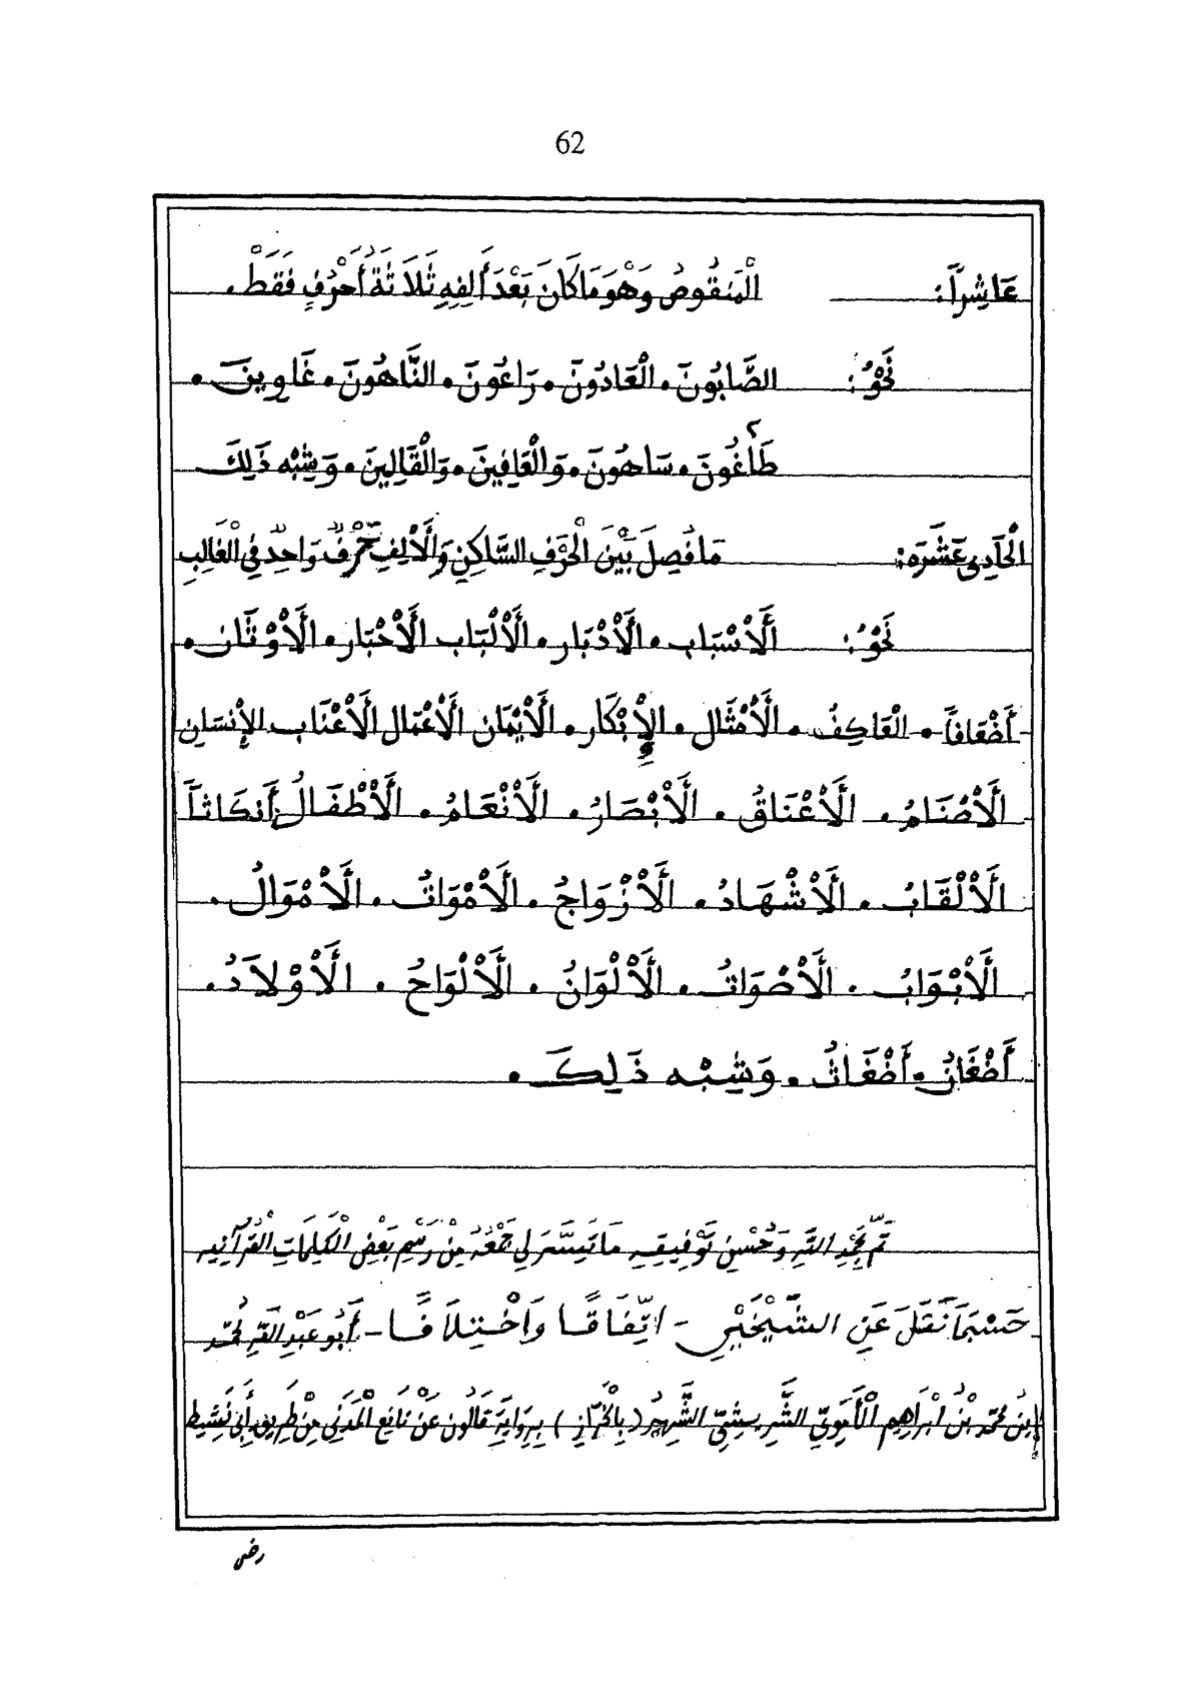 62
عَاشِراً: الْمَنقُوصُ وَهْوَ مَا كَانَ بَعْدَ أَلِفِهِ ثَلَاثَةُ أَحْرُفٍ فَقَطْ .
نَحْوُ: الصَّابُونَ . الْعَادُونَ . رَاعُونَ . النَّاهُونَ . غَاوِينَ .
طَاغُونَ . سَاهُونَ . وَالْعَافِينَ . وَالْقَالِينَ . وَشِبْه ذَلِكَ
الْحَادِي عَشَرَه: مَا فُصِلَ بَيْنَ الْحَرْفِ السَّاكِنِ وَالْأَلِفِ حَرْفٌ وَاحِدٌ فِي الْغَالِبِ
نَحْوُ: الْأَسْبَاب . الْأَدْبَار . الْأَلْبَاب الْأَحْبَار . الْأَوْثَان .
أَضْعَافاً . الْعَاكِفُ . الْأَمْثَال . الْإِبْكَار . الْأَيْمَان الْأَعْمَال الْأَعْنَاب الإِنْسَان
الْأَصْنَامُ . الْأَعْنَاقُ . الْأَبْصَارُ . الْأَنْعَامُ . الْأَطْفَالُ أَنكَاثاً
الْأَلْقَابُ . الْأَشْهَادُ . الْأَزْوَاجُ . الْأَمْوَاتُ . الْأَمْوَالُ .
الْأَبْوَابُ . الْأَصْوَاتُ . الْأَلْوَانُ . الْأَلْوَاحُ . الْأَوْلَادُ .
أَضْغَانُ . أَضْغَاثُ . وَشِبْه ذَلِكَ .
تَمَّ بِحَمْدِ اللَّهِ وَحُسْنِ تَوْفِيقِهِ مَا تَيَسَّرَ لِي جَمْعُهُ مِنْ رَسْمِ بَعْضِ الْكَلِمَاتِ الْقُرْآنِيه
حَسْبَمَا نَقَلَ عَنِ الشَّيْخَيْنِ - اتِّفَاقًا وَاخْتِلَافًا - أَبُو عَبْدِ اللَّهِ مُحَمَّد
ابْنُ مُحَمَّد بْنُ ابْرَاهِيم الْأُمَوِيِّ الشَّرِيشِيِّ الشَّهِيرُ (بِالْخَرَّازِ) بِرِوَايَةِ قَالُون عَنْ نَافِعِ الْمَدَنِي مِنْ طَرِيق أَبِي نَشِيط
رضى